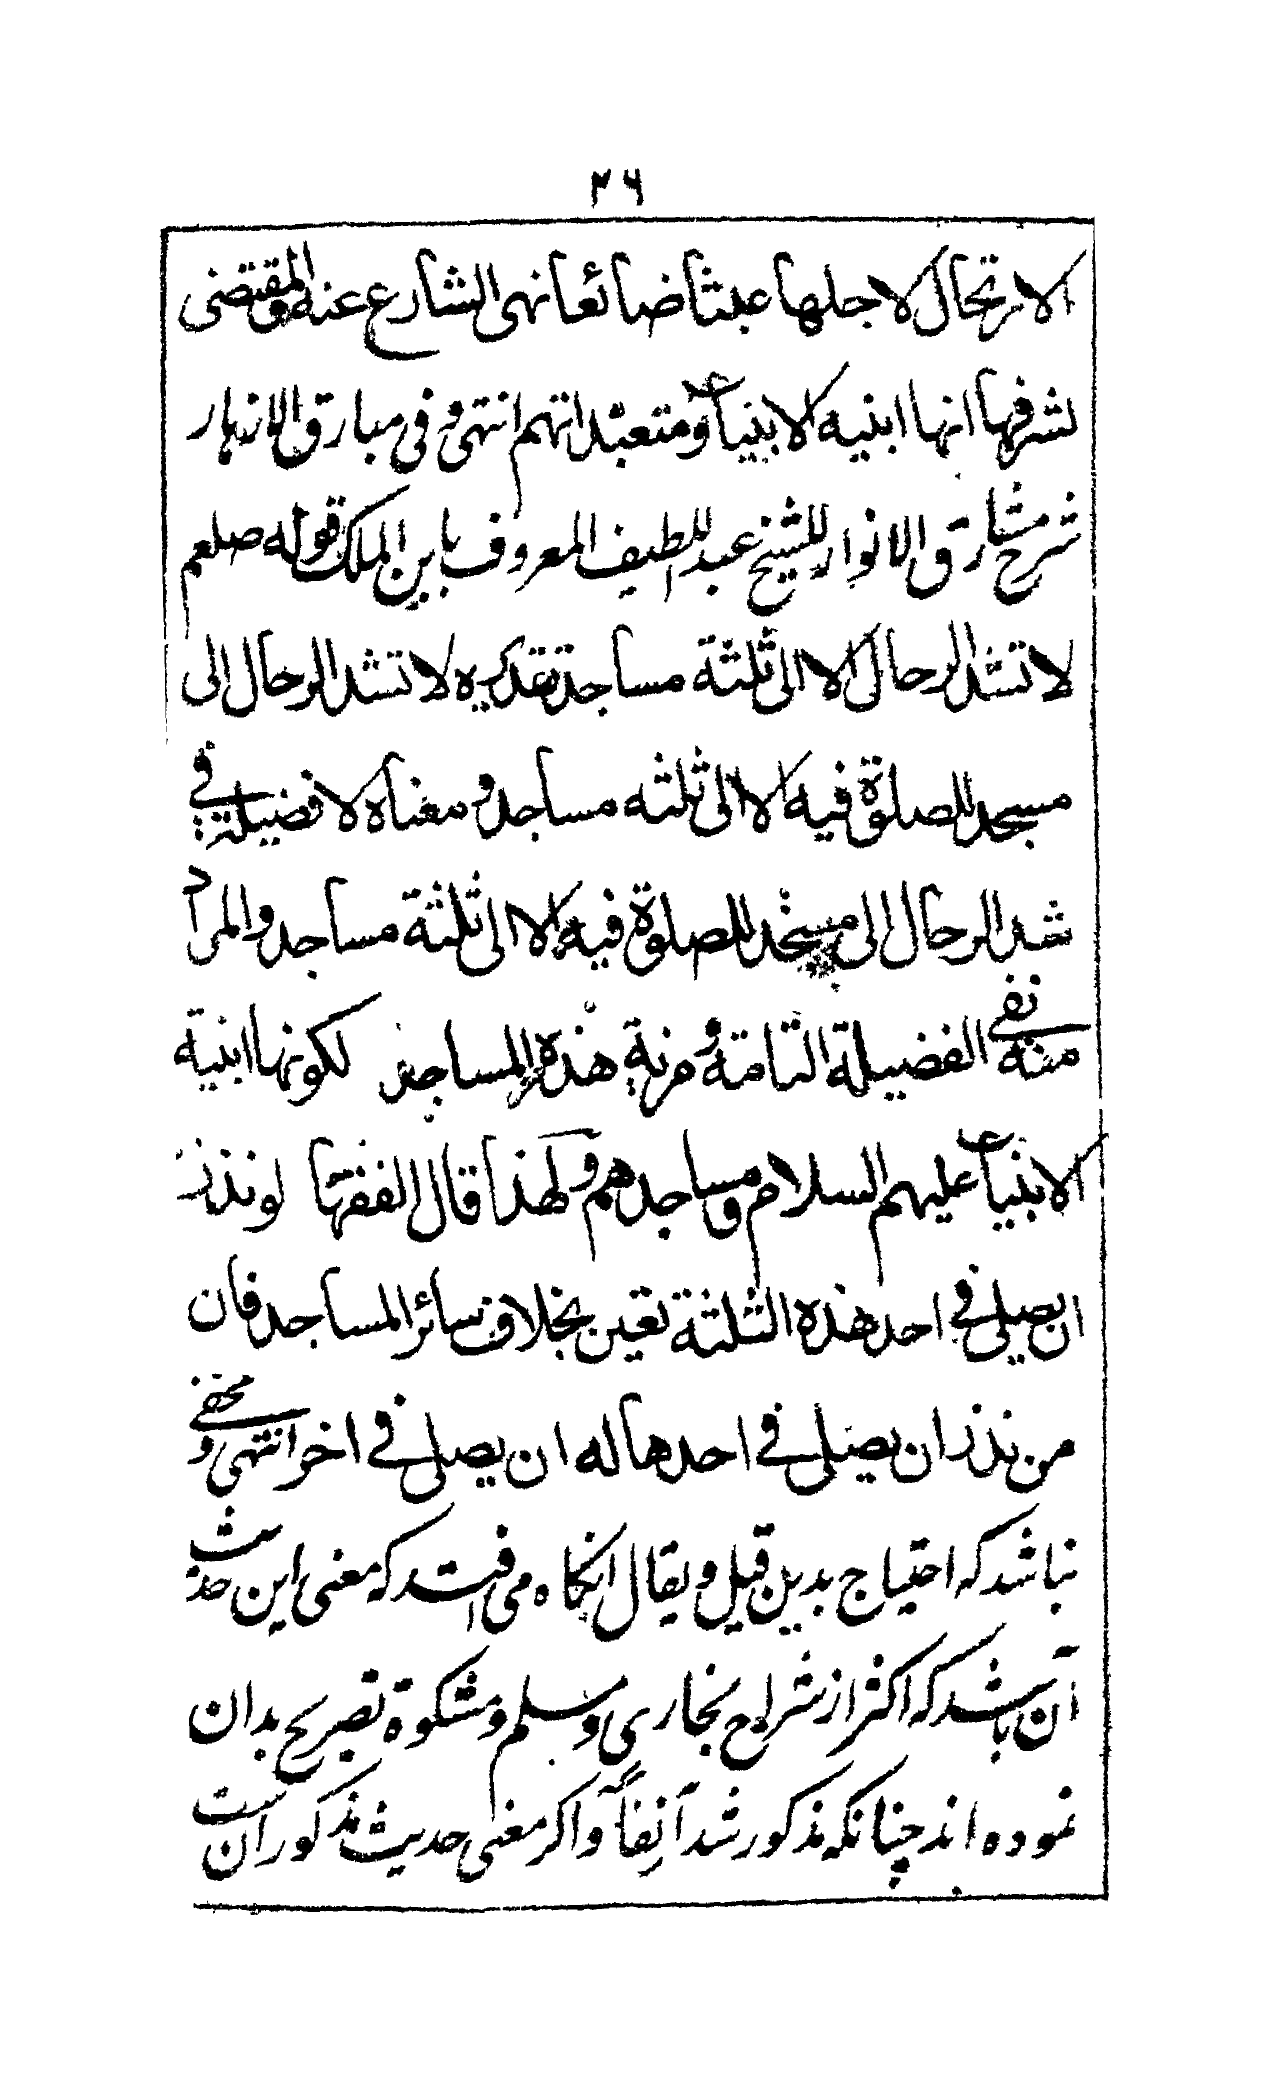 ۲۶
الارتحال لاجلها عبثا ضائعا نهى الشارع عنه والمقتضى
لشرفها انها ابنيه الانبياء ومتعبداتهم انتهى و فى مبارق الازهار
شرح مشارق الانوار للشيخ عبد اللطيف المعروف بابن الملك قوله صلعم
لا تشد الرحال الا الى ثلثة مساجد تقديره لا تشد الرحال الى
مسجد للصلوة فيه الا الى ثلثه مساجد و معناه لا فضيلة فى
شد الرحال الى مسجد للصلوة فيه الا الى ثلثة مساجد والمراد
منه نفى الفضيلة التامة و مزية هذه المساجد لكونها ابنية
الانبياء عليهم السلام ومساجدهم و لهذا قال الفقها لو نذر
ان يصلى فى احد هذه الثلثة تعين بخلاف سائر المساجد فان
من نذر ان يصلى فى احدها له ان يصلى فى اخر انتهى و مخفى
نباشد که احتیاج بدین قیل و یقال انگاه می افتد که معنی این حدیث
آن باشد که اکثر از شراح بخاری و مسلم و مشکوة تصریح بدان
نموده اند چنانکه مذکور شد آنفاً و اگر معنی حدیث مذکور آنست